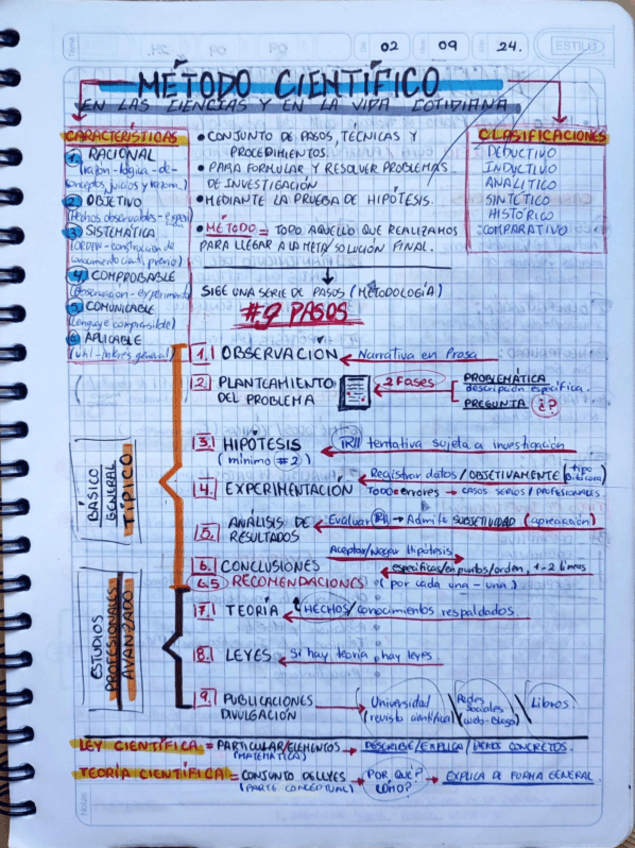 02 09 24.
ESTILO
MÉTODO CIENTÍFICO
EN LAS CIENCIAS Y EN LA VIDA COTIDIANA
CARACTERÍSTICAS
1. RACIONAL
(razón - lógica - de -
conceptos, juicios y razona..)
2. OBJETIVO
(Hechos observables - experi)
3. SISTEMÁTICA
(ORDEN - construcción de
conocimiento cient. previo)
4. COMPROBABLE
(Observación - experimento
5. COMUNICABLE
(Lenguaje comprensible)
6. APLICABLE
(útil - interés general)
• CONJUNTO DE PASOS, TÉCNICAS Y
PROCEDIMIENTOS,
• PARA FORMULAR Y RESOLVER PROBLEMAS
DE INVESTIGACIÓN
• MEDIANTE LA PRUEBA DE HIPÓTESIS.
• MÉTODO = TODO AQUELLO QUE REALIZAMOS
PARA LLEGAR A LA META/SOLUCIÓN FINAL.
CLASIFICACIONES
DEDUCTIVO
INDUCTIVO
ANALITICO
SINTÉTICO
HISTÓRICO
COMPARATIVO
SIGE UNA SERIE DE PASOS (METODOLOGÍA)
#9 PASOS
1. OBSERVACIÓN Narrativa en Prosa
2. PLANTEAMIENTO
DEL PROBLEMA
2 Fases
PROBLEMÁTICA
descripción específica.
PREGUNTA ¿?
3. HIPÓTESIS
(mínimo #2)
tentativa sujeta a investigación
4. EXPERIMENTACIÓN
Registrar datos/OBJETIVAMENTE (tipo
Bitácora)
errores → CASOS SERIOS/PROFESIONALES
5. ANÁLISIS DE
RESULTADOS
Evaluar → Admite SUBJETIVIDAD (apreciación)
6. CONCLUSIONES
Aceptar/Negar Hipótesis
específicas/en puntos/orden, 1-2 líneas
6.5 RECOMENDACIONES (por cada una - una)
7. TEORÍA HECHOS/conocimientos respaldados.
8. LEYES Si hay teoría, hay leyes
9. PUBLICACIONES
DIVULGACIÓN
Universidad
(revista científica)
Redes
sociales
(web-Blogs)
Libros
BÁSICO
GENERAL
TÍPICO
ESTUDIOS
PROFESIONALES
AVANZADO
LEY CIENTÍFICA = PARTICULAR/ELEMENTOS → DESCRIBE/EXPLICA/ CONCRETOS.
(MATEMÁTICA)
TEORÍA CIENTÍFICA = CONJUNTO DE LEYES → POR QUÉ? → EXPLICA DE FORMA GENERAL.
(PARTE CONCEPTUAL) CÓMO?